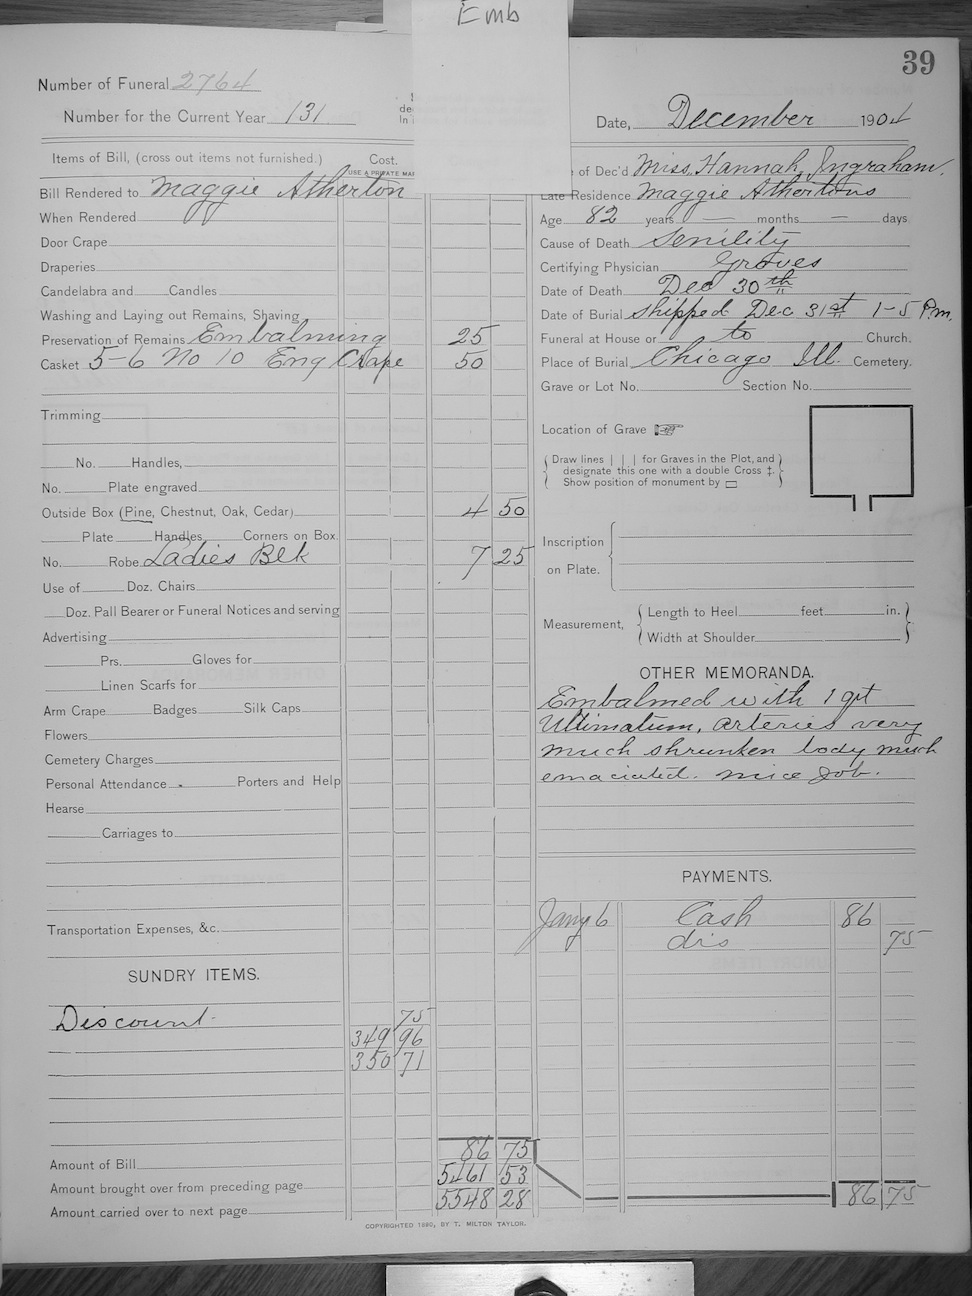 Emb
39
Number of Funeral 2764
Number for the Current Year 131
de
In
Date, December 1904
Items of Bill, (cross out items not furnished.) Cost.
USE A PRIVATE MAR
Bill Rendered to Maggie Atherton
When Rendered
Door Crape
Draperies
Candelabra and Candles
Washing and Laying out Remains, Shaving
Preservation of Remains Embalming 25
Casket 5-6 No 10 Eng Crape 50
Trimming
No. Handles,
No. Plate engraved
Outside Box (Pine, Chestnut, Oak, Cedar) 4 50
Plate Handles Corners on Box
No. Robe Ladies Blk 7 25
Use of Doz. Chairs
Doz. Pall Bearer or Funeral Notices and serving
Advertising
Prs. Gloves for
Linen Scarfs for
Arm Crape Badges Silk Caps
Flowers
Cemetery Charges
Personal Attendance Porters and Help
Hearse
Carriages to
Transportation Expenses, &c.
SUNDRY ITEMS.
Discount 75
349 96
350 71
Amount of Bill 86 75
Amount brought over from preceding page 5461 53
Amount carried over to next page 5548 28
of Dec'd Miss. Hannah Ingraham.
Late Residence Maggie Athertons
Age 82 years — months — days
Cause of Death Senility
Certifying Physician Groves
Date of Death Dec 30th
Date of Burial Shipped Dec 31st 1-5 P.m.
Funeral at House or to Church.
Place of Burial Chicago Ill. Cemetery.
Grave or Lot No. Section No.
Location of Grave
Draw lines | | | for Graves in the Plot, and
designate this one with a double Cross ‡.
Show position of monument by ▭
Inscription
on Plate.
Measurement, Length to Heel feet in.
Width at Shoulder
OTHER MEMORANDA.
Embalmed with 1 qt
Ultimatum, arteries very
much shrunken body much
emaciated. nice job.
PAYMENTS.
Jany 6 Cash 86
dis 75
86 75
COPYRIGHTED 1890, BY T. MILTON TAYLOR.